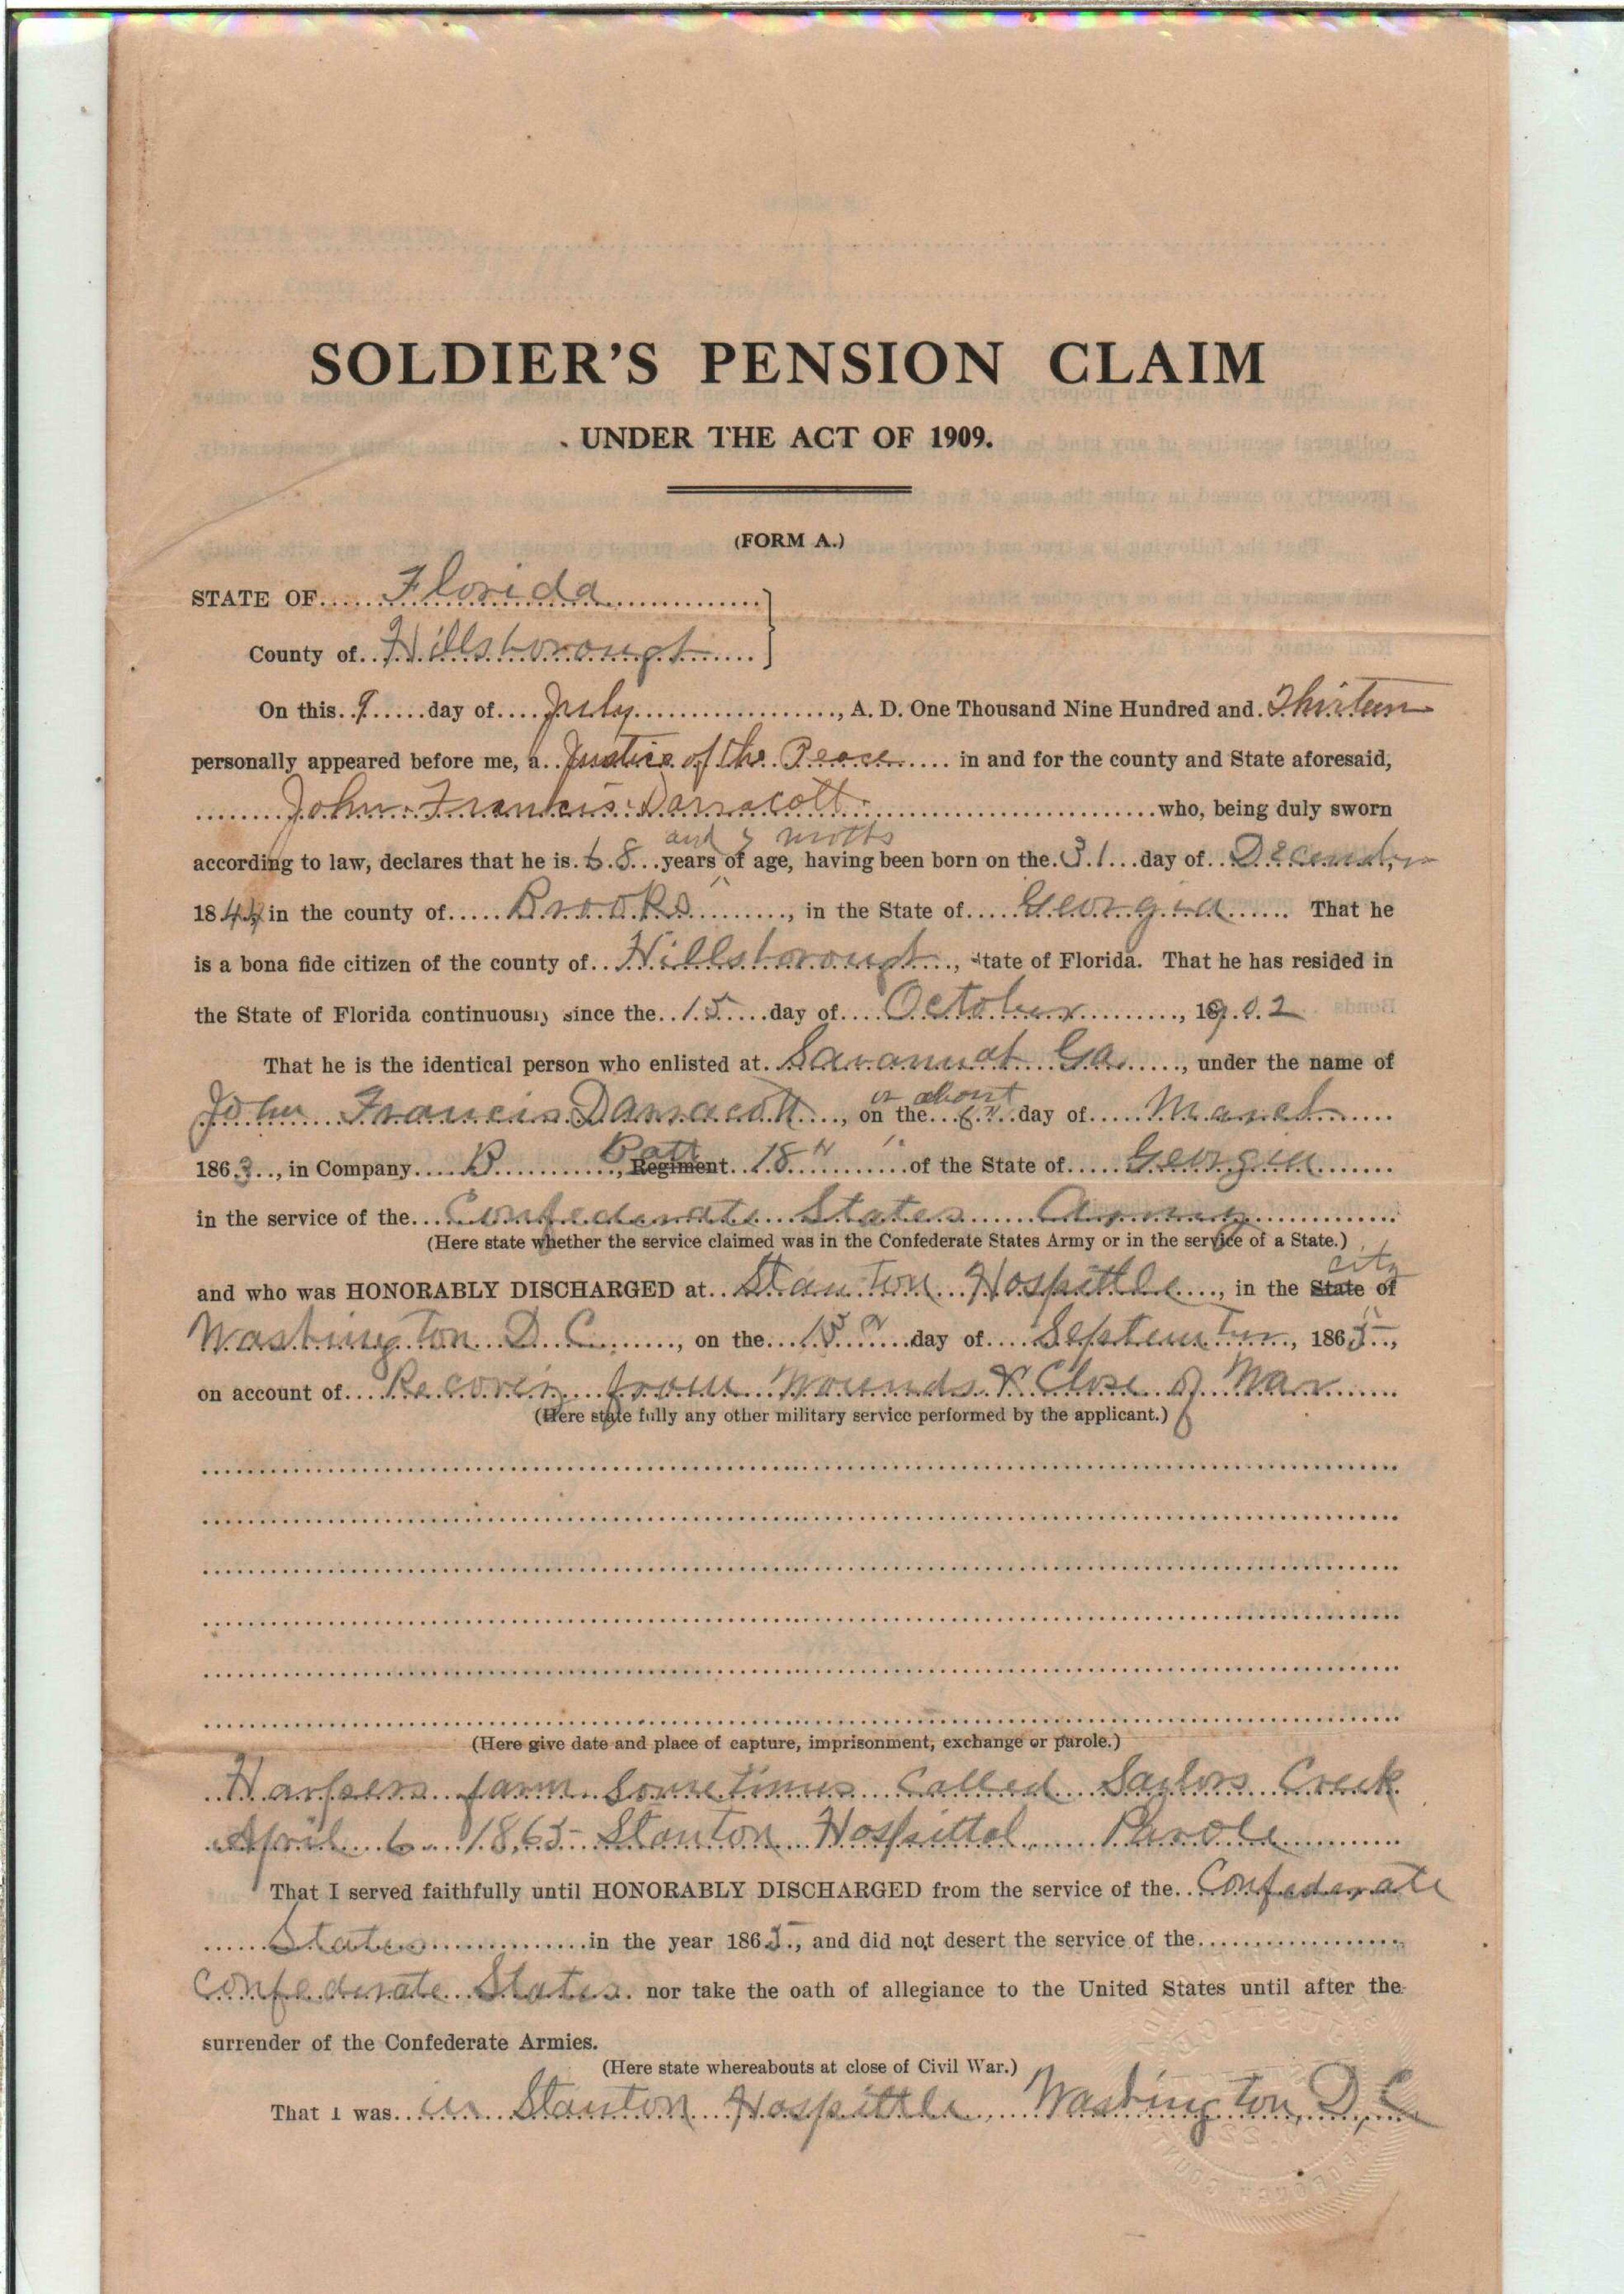 SOLDIER'S PENSION CLAIM
UNDER THE ACT OF 1909.
(FORM A.)
STATE OF Florida
County of Hillsborough
On this 9 day of July, A. D. One Thousand Nine Hundred and Thirteen
personally appeared before me, a Justice of the Peace in and for the county and State aforesaid,
John Francis Darracott who, being duly sworn
and 7 moths
according to law, declares that he is 68 years of age, having been born on the 31 day of December
1844 in the county of Brooks, in the State of Georgia. That he
is a bona fide citizen of the county of Hillsborough, State of Florida. That he has resided in
the State of Florida continuously since the 15 day of October, 1902
That he is the identical person who enlisted at Savannah Ga, under the name of
or about
John Francis Darracott, on the day of March
1863, in Company B, Batt Regiment 18" of the State of Georgia
in the service of the Confederate States Army
(Here state whether the service claimed was in the Confederate States Army or in the service of a State.)
city
and who was HONORABLY DISCHARGED at Stanton Hospittle, in the State of
Washington D.C., on the 15 day of September, 1865,
on account of Recovery from Wounds & Close of War
(Here state fully any other military service performed by the applicant.)
(Here give date and place of capture, imprisonment, exchange or parole.)
Harpers farm Sometimes Called Saylors Creek
April 6 1865 Stanton Hospittal Parole
That I served faithfully until HONORABLY DISCHARGED from the service of the Confederate
States in the year 1865, and did not desert the service of the
Confederate States nor take the oath of allegiance to the United States until after the
surrender of the Confederate Armies.
(Here state whereabouts at close of Civil War.)
That I was in Stanton Hospittle, Washington, D.C.